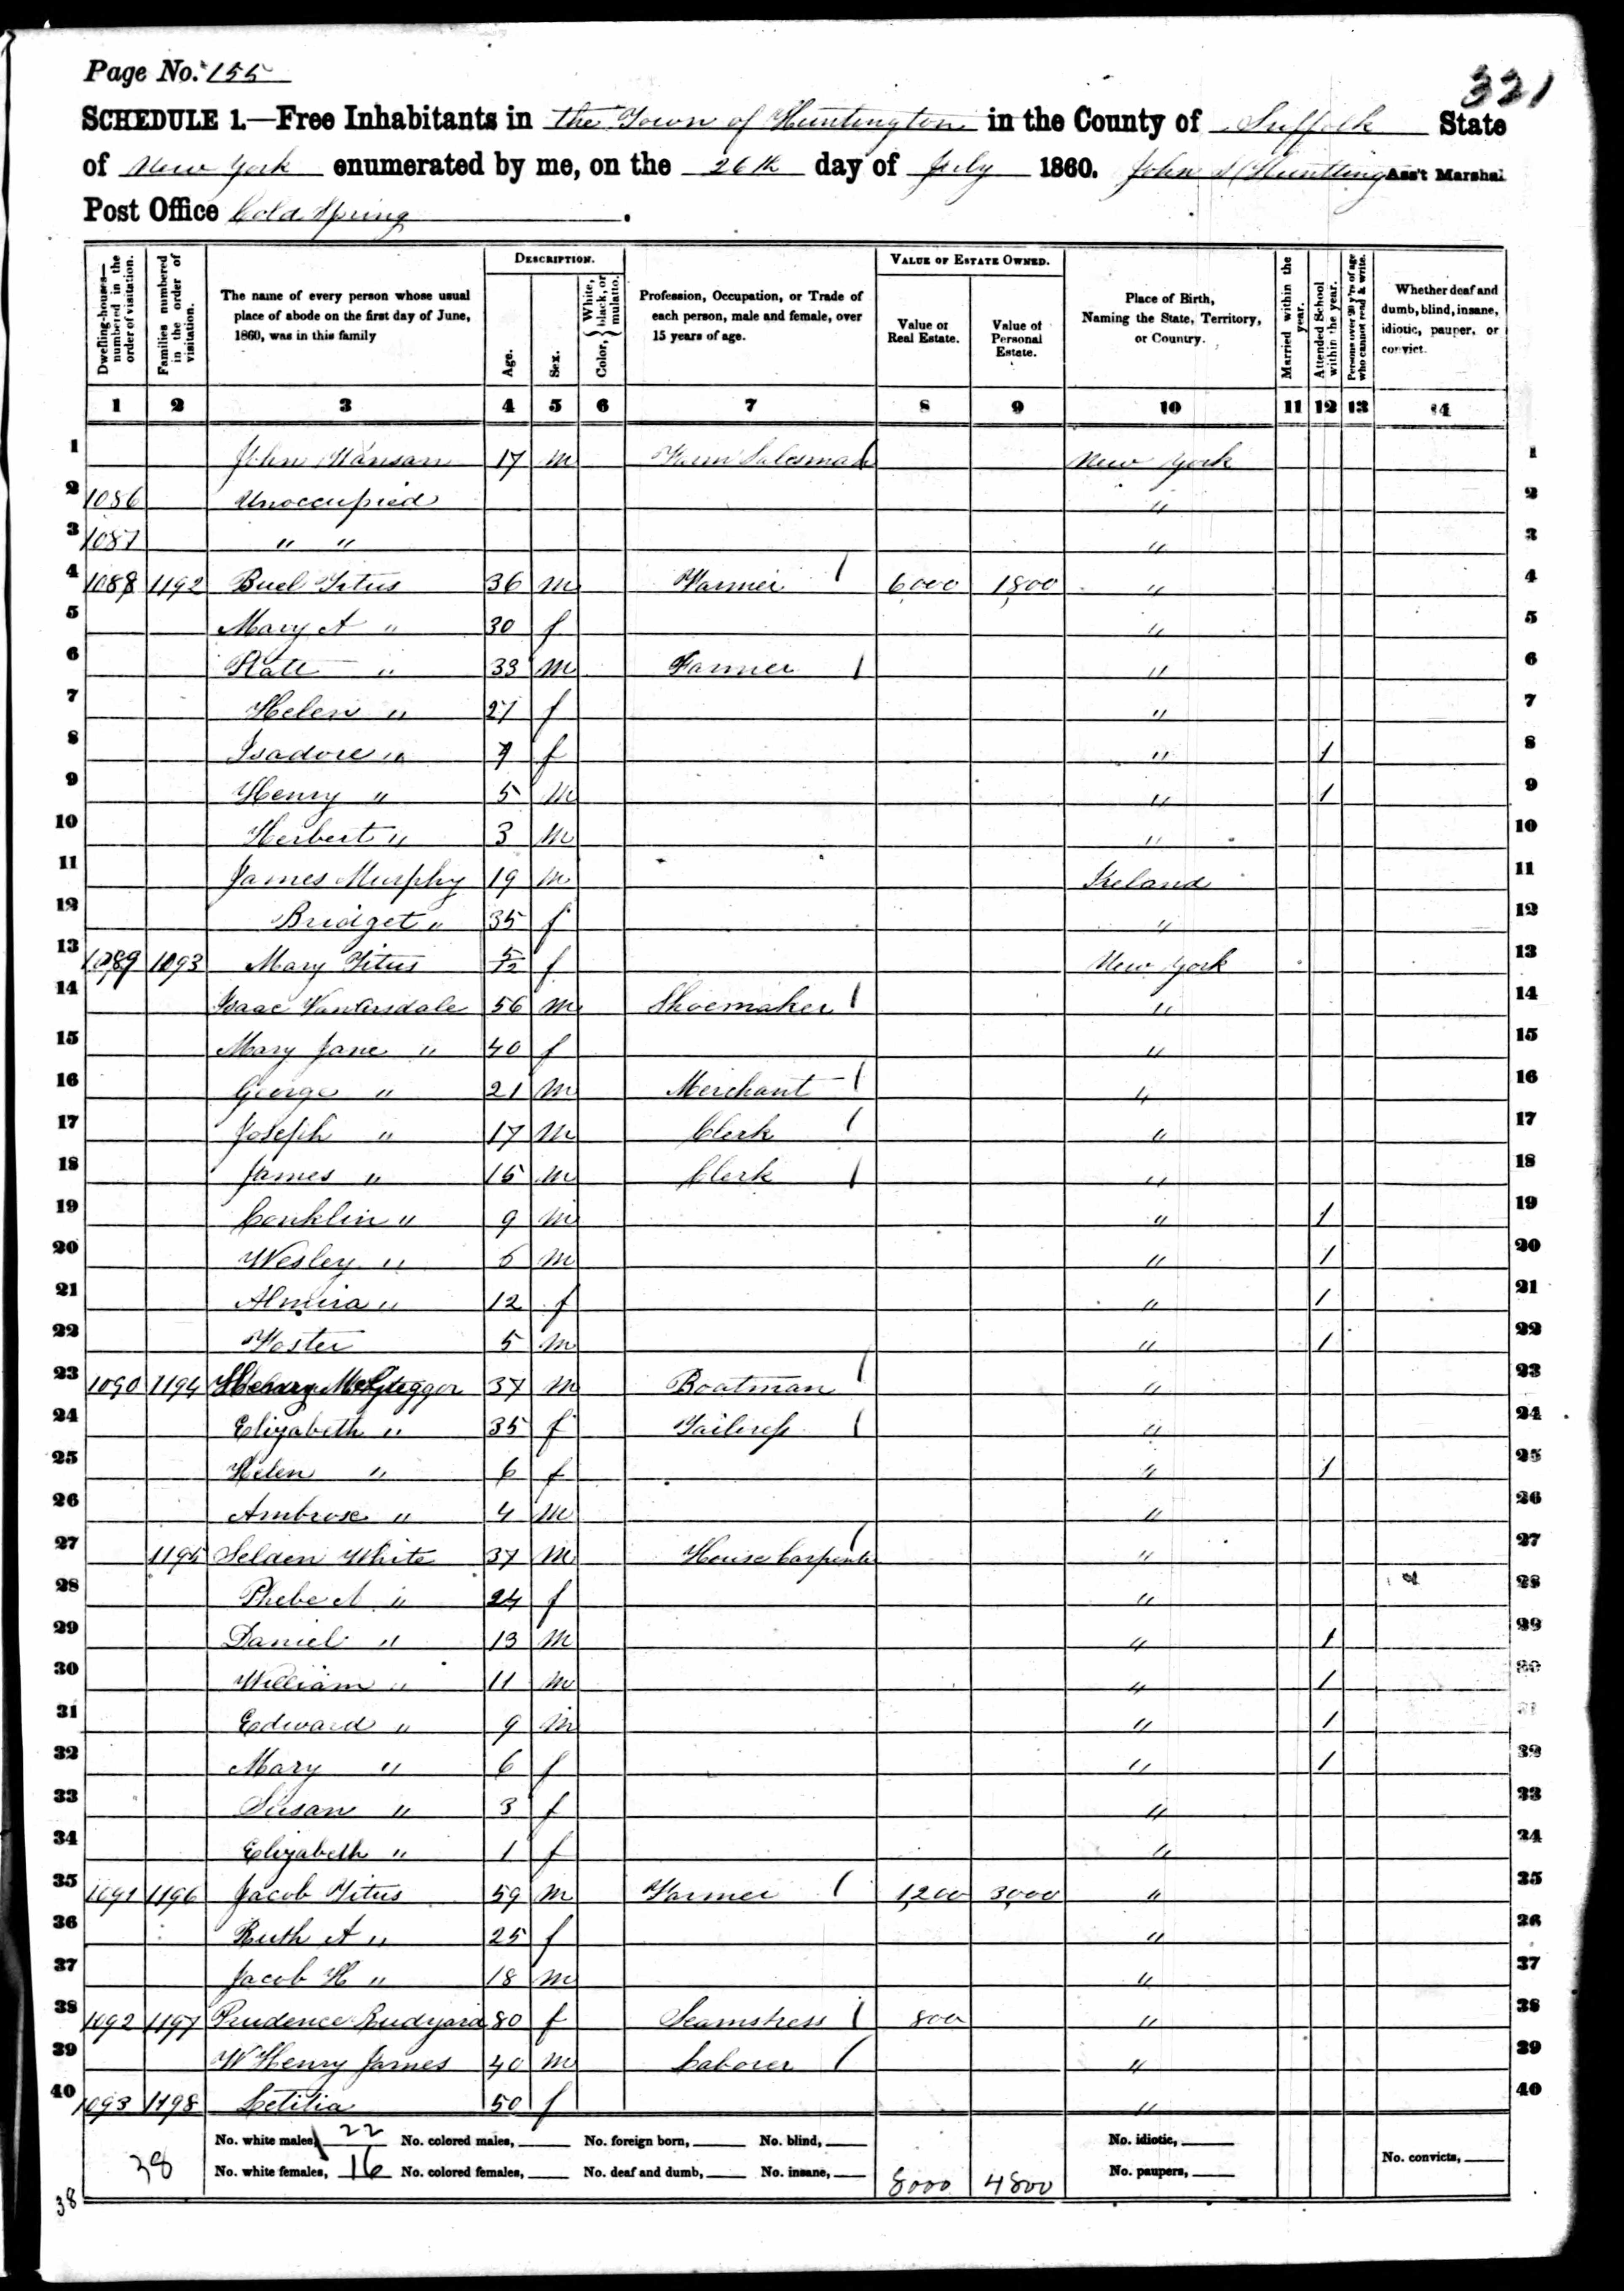 Page No. 155
321
SCHEDULE 1.—Free Inhabitants in the Town of Huntington in the County of Suffolk State
of New York enumerated by me, on the 26th day of July 1860. John Huntting Ass't Marshal
Post Office Cold Spring.
Dwelling-houses—numbered in the order of visitation.
Families numbered in the order of visitation.
The name of every person whose usual place of abode on the first day of June, 1860, was in this family
DESCRIPTION.
Age.
Sex.
Color, { White, black, or mulatto.
Profession, Occupation, or Trade of each person, male and female, over 15 years of age.
VALUE OF ESTATE OWNED.
Value of Real Estate.
Value of Personal Estate.
Place of Birth, Naming the State, Territory, or Country.
Married within the year.
Attended School within the year.
Persons over 20 y'rs of age who cannot read & write.
Whether deaf and dumb, blind, insane, idiotic, pauper, or convict.
1 2 3 4 5 6 7 8 9 10 11 12 13 14
1 John 17 m New York 1
2 1086 Unoccupied " 2
3 1087 " " " 3
4 1088 1192 Buel Titus 36 m Farmer / 6000 1800 " 4
5 Mary A " 30 f " 5
6 Platt " 33 m Farmer / " 6
7 Helen " 27 f " 7
8 Isadore " 7 f " / 8
9 Henry " 5 m " / 9
10 Herbert " 3 m " 10
11 James Murphy 19 m Ireland 11
12 Bridget " 35 f " 12
13 1089 1093 Mary Titus 5/12 f New York 13
14 Isaac VanArsdale 56 m Shoemaker / " 14
15 Mary Jane " 40 f " 15
16 George " 21 m Merchant / " 16
17 Joseph " 17 m Clerk / " 17
18 James " 15 m Clerk / " 18
19 Conklin " 9 m " / 19
20 Wesley " 5 m " / 20
21 Almira " 12 f " / 21
22 Foster 5 m " / 22
23 1090 1194 Henry McGreggor 37 m Boatman / " 23
24 Elizabeth " 35 f Tailress / " 24
25 Helen " 6 f " / 25
26 Ambrose " 4 m " 26
27 1195 Selden White 37 m House Carpenter / " 27
28 Phebe A " 24 f " 28
29 Daniel " 13 m " / 29
30 William " 11 m " / 30
31 Edward " 9 m " / 31
32 Mary " 6 f " / 32
33 Susan " 3 f " 33
34 Elizabeth " 1 f " 34
35 1091 1196 Jacob Titus 59 m Farmer / 1,200 3000 " 35
36 Ruth A " 25 f " 36
37 Jacob H " 18 m " 37
38 1092 1197 Prudence Rudyard 80 f Seamstress / 800 " 38
39 W Henry James 40 m Laborer / " 39
40 1093 1198 Letitia 50 f " 40
No. white males, 22 No. colored males, No. foreign born, No. blind, No. idiotic,
38 No. white females, 16 No. colored females, No. deaf and dumb, No. insane, 8000 4800 No. paupers, No. convicts,
38